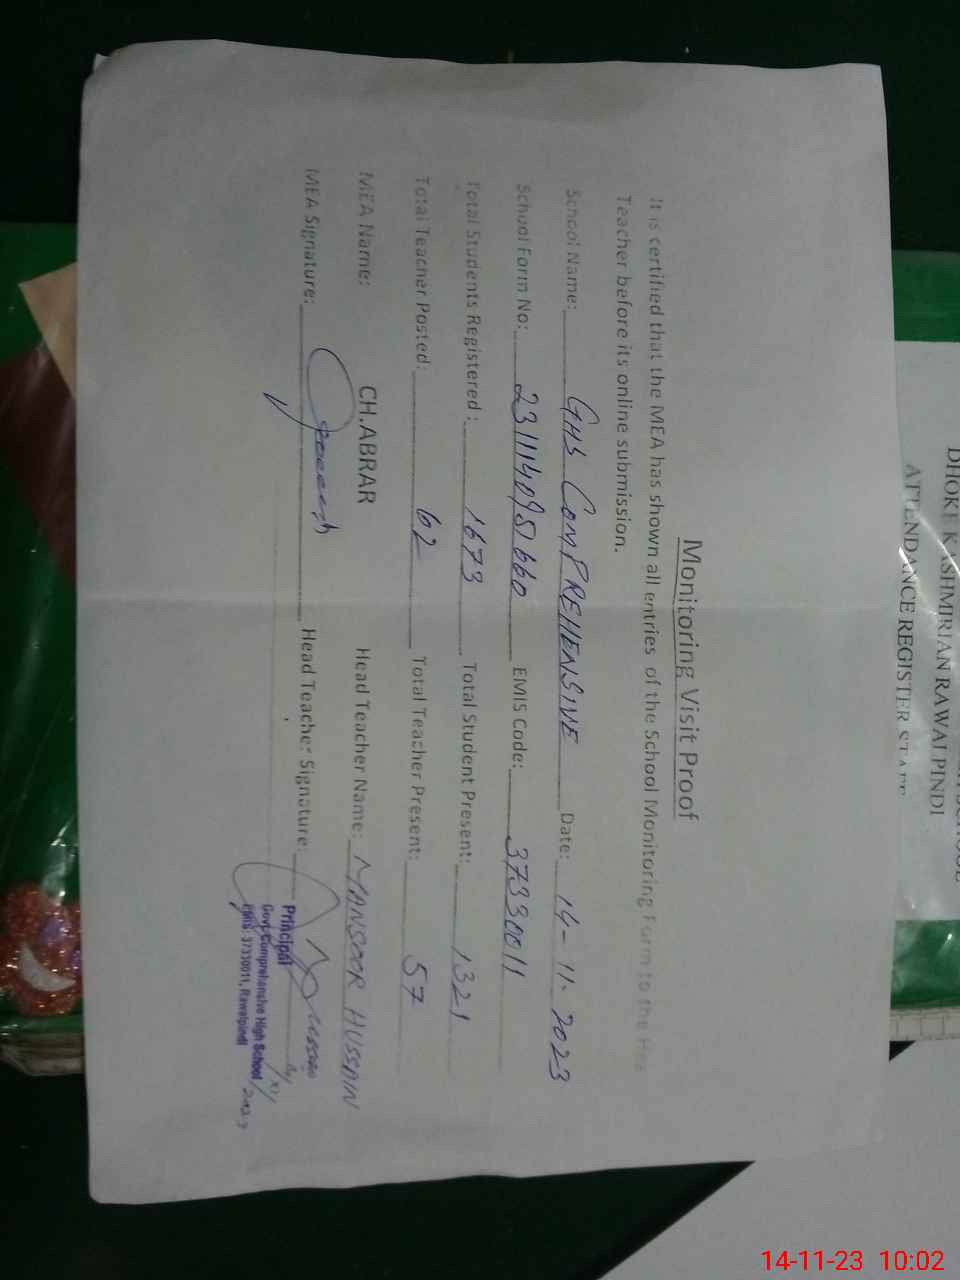 Monitoring Visit Proof
It is certified that the MEA has shown all entries of the School Monitoring Form to the Hea
Teacher before its online submission.
School Name: GHS COMPREHENSIVE Date: 14-11-2023
School Form No: EMIS Code: 37330011
Total Students Registered : 1673 Total Student Present: 1321
Total Teacher Posted: 62 Total Teacher Present: 57
MEA Name: CH.ABRAR Head Teacher Name: MANSOOR HUSSAIN
MEA Signature: Head Teacher Signature:
Principal
Govt Comprehensive High School
EMIS: 37330011, Rawalpindi
DHOKE KASHMIRIAN RAWALPINDI
ATTENDANCE REGISTER STAFF
14-11-23 10:02